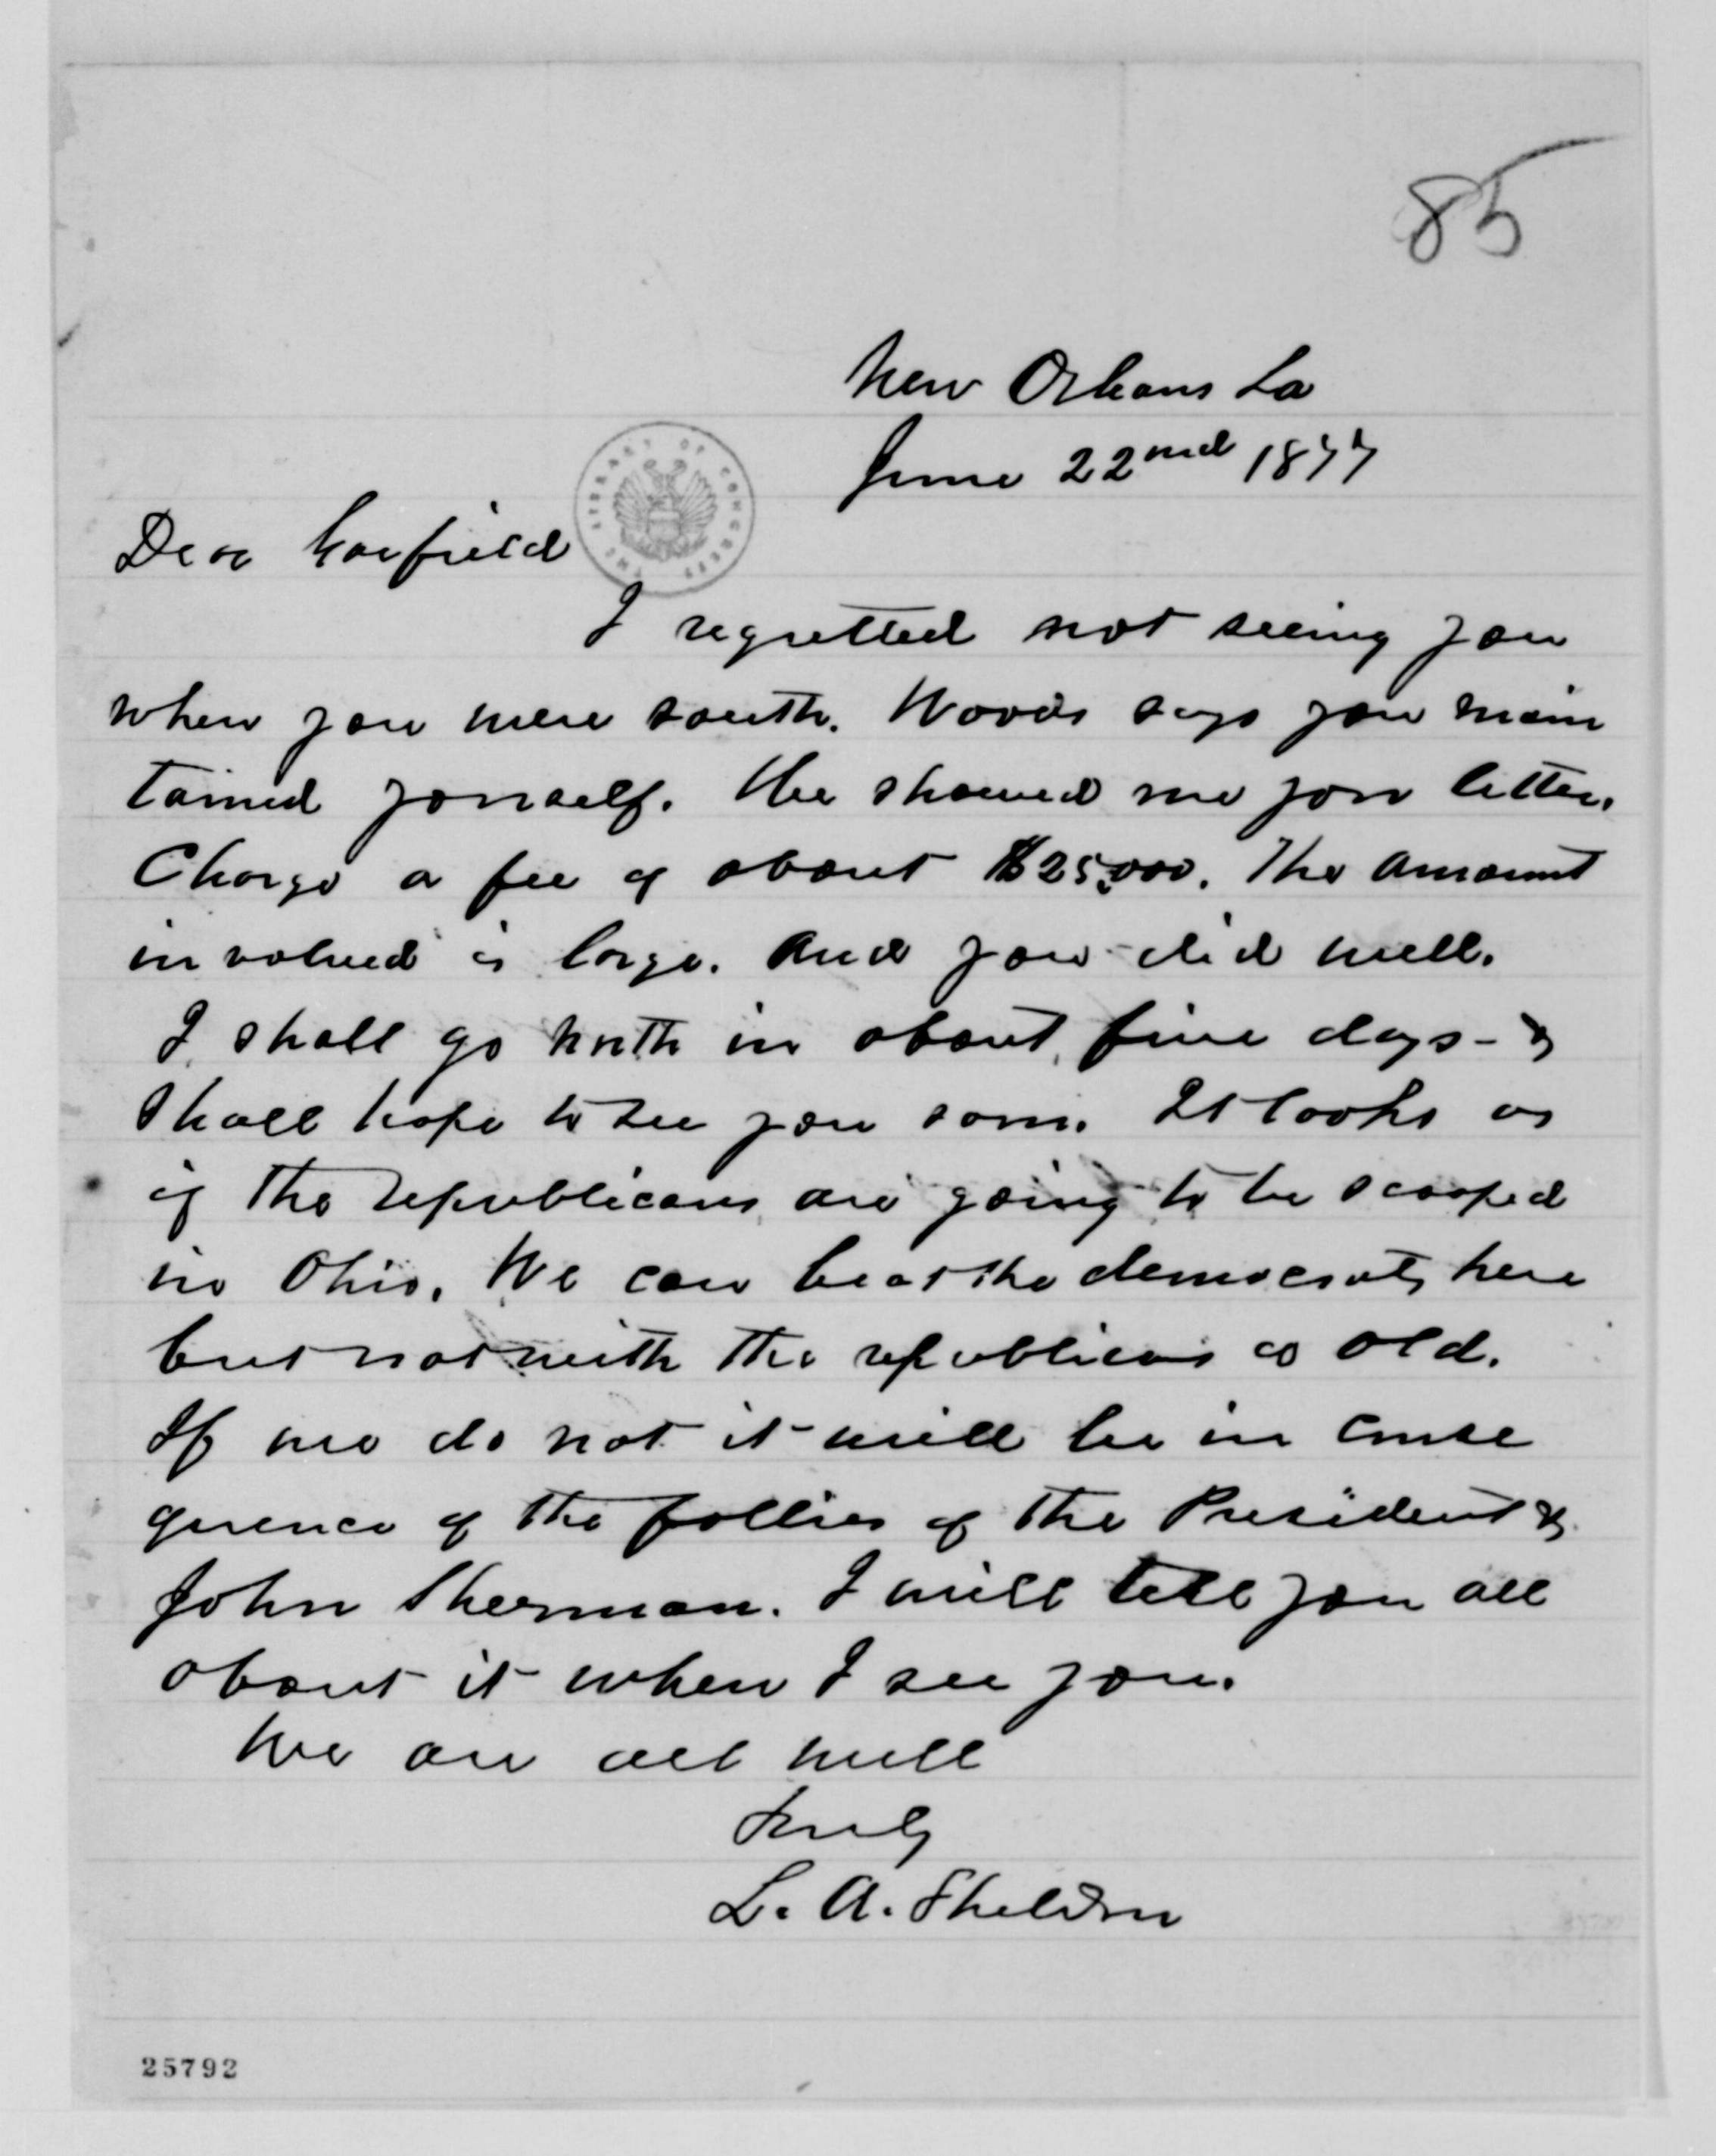 85
New Orleans La
June 22nd 1877
THE LIBRARY OF CONGRESS
Dear Garfield
I regretted not seeing you
when you were south. Woods says you main
tained yourself. He showed me your letter.
Charge a fee of about $25,000. The amount
involved is large. And you did well.
I shall go north in about five days - &
shall hope to see you soon. It looks as
if the republicans are going to be scooped
in Ohio. We can beat the democrats here
but not with the republicans as old.
If we do not it will be in conse
quence of the follies of the President &
John Sherman. I will tell you all
about it when I see you.
We are all well
Truly
L. A. Sheldon
25792